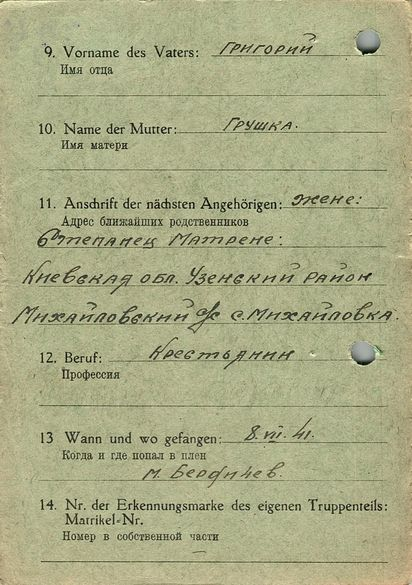 9. Vorname des Vaters: ГРИГОРИЙ
Имя отца
10. Name der Mutter: ГРУШКА.
Имя матери
11. Anschrift der nächsten Angehörigen: жене:
Адрес ближайших родственников
Степанец Матрене:
Киевская обл. Узенский район
Михайловский с/с с. Михайловка.
12. Beruf: Крестьянин
Профессия
13 Wann und wo gefangen: 8.VII.41.
Когда и где попал в плен
м. Бердичев.
14. Nr. der Erkennungsmarke des eigenen Truppenteils:
Matrikel-Nr.
Номер в собственной части
—